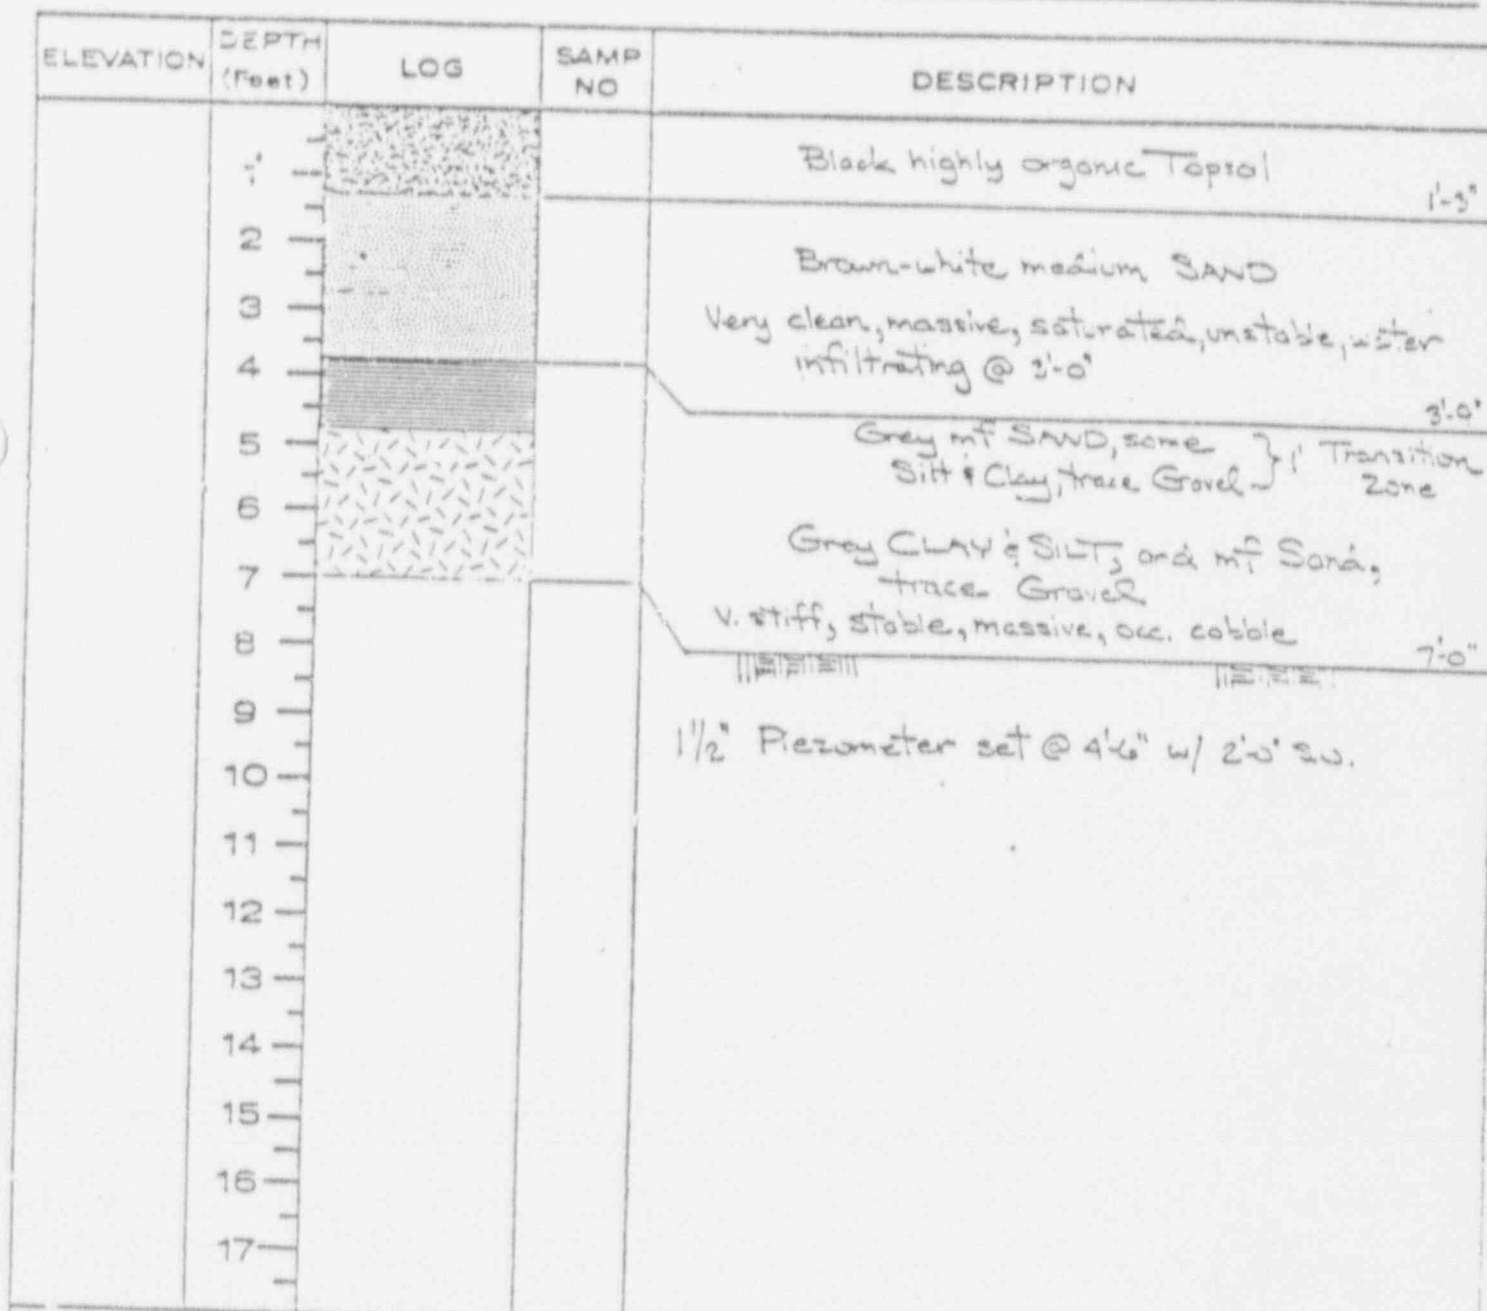 ELEVATION
DEPTH
(Feet)
LOG
SAMP
NO
DESCRIPTION
Black highly organic Topsoil
1'-3"
2
Brown-white medium SAND
3
Very clean, massive, saturated, unstable, water
infiltrating @
4
3'-0"
5
Grey mf SAND, some
Silt & Clay, trace Gravel } 1' Transition
Zone
6
Grey CLAY & SILT, and mf Sand,
trace Gravel
7
V. stiff, stable, massive, occ. cobble
8
7'-0"
9
1 1/2" Piezometer set @ 4'-6" w/ 2'-0"
10
11
12
13
14
15
16
17